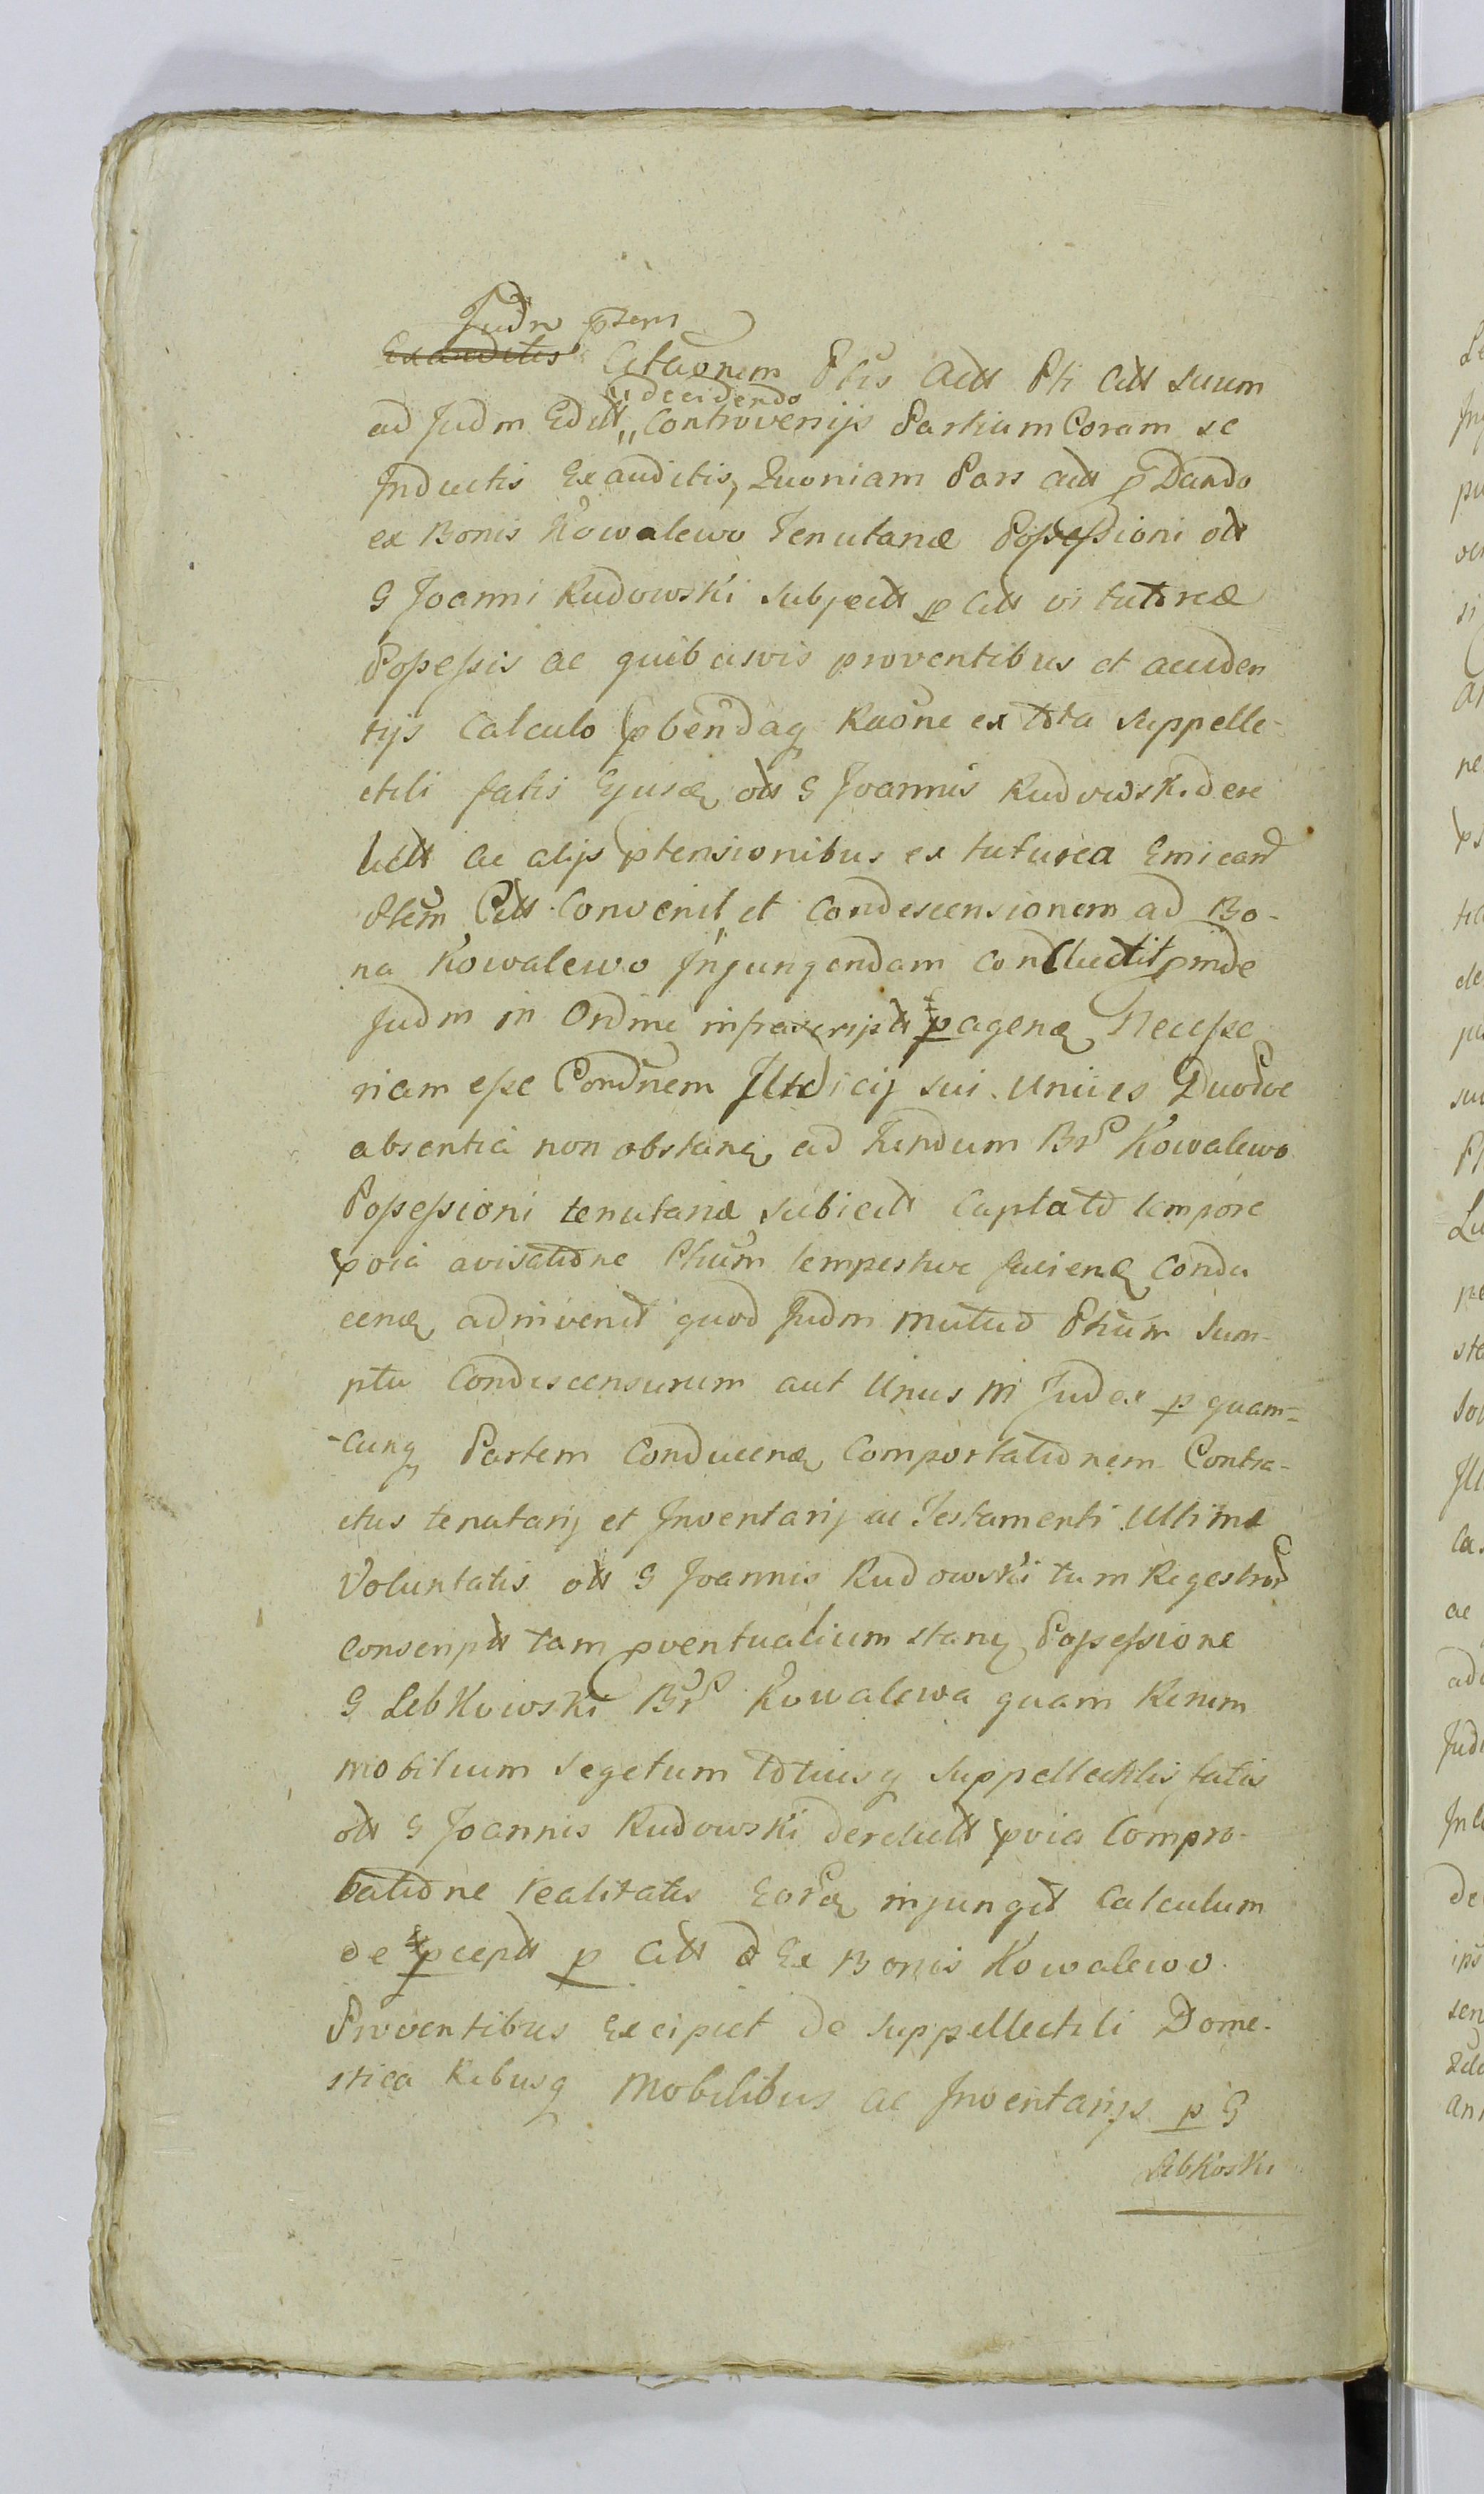 Judm pñens
Exauditis Citaõnem Ptis Actt Pti Citt suum
decidendo
ad Judm Editt „ Controversijs Partium Coram se
Inductis Exauditis, Quoniam Pars actt p Dando
ex Bonis Kowalewo Tenutariæ Possessioni ott
G Joanni Rudowski subjectt p Citt vi tutoreæ
Possessis ac quibusvis proventibus et acciden
tijs Calculo pbendaq Raõne ex tota suppelle-
ctili fatis Ejusd ott G Joannis Rudowski dere
lictt ac alijs ptensionibus ex tutorea Emicand
Ptem Citt Convenit, et Condescensionem ad Bo-
na Kowalewo Injungendam concludit pinde
Judm in Ordine infrascriptt pagend Necesse
riam esse Condñem Judicij sui Unius Duorve
absentia non obstan ad fundum Br Kowalewo
Possessioni tenutariæ subjectt Captato tempore
pvia avisatione Ptium tempestive faciend Condu
cend adinvenit quod Judm mutuo Ptium sum-
ptu Condescensurum aut Unus in Judex p quam=
-cunq Partem Conducend Comportationem Contra-
ctus tenutarij et Inventarij ac Testamenti Ultimæ
Voluntatis ott G Joannis Rudowski tum Regestror
conscriptt tam pventualium stan Possessione
G Lebkowski Br Kowalewa quam Rerum
mobilium segetum totiusq suppellectilis fatis
ott G Joannis Rudowski derelictt pvia Compro-
batione realitatis Eord injunget Calculum
de pceptt p Citt Ex Bonis Kowalewo
Proventibus Excipiet de suppellectili Dome-
stica Rebusq Mobilibus ac Inventarijs p G
Lebkoski